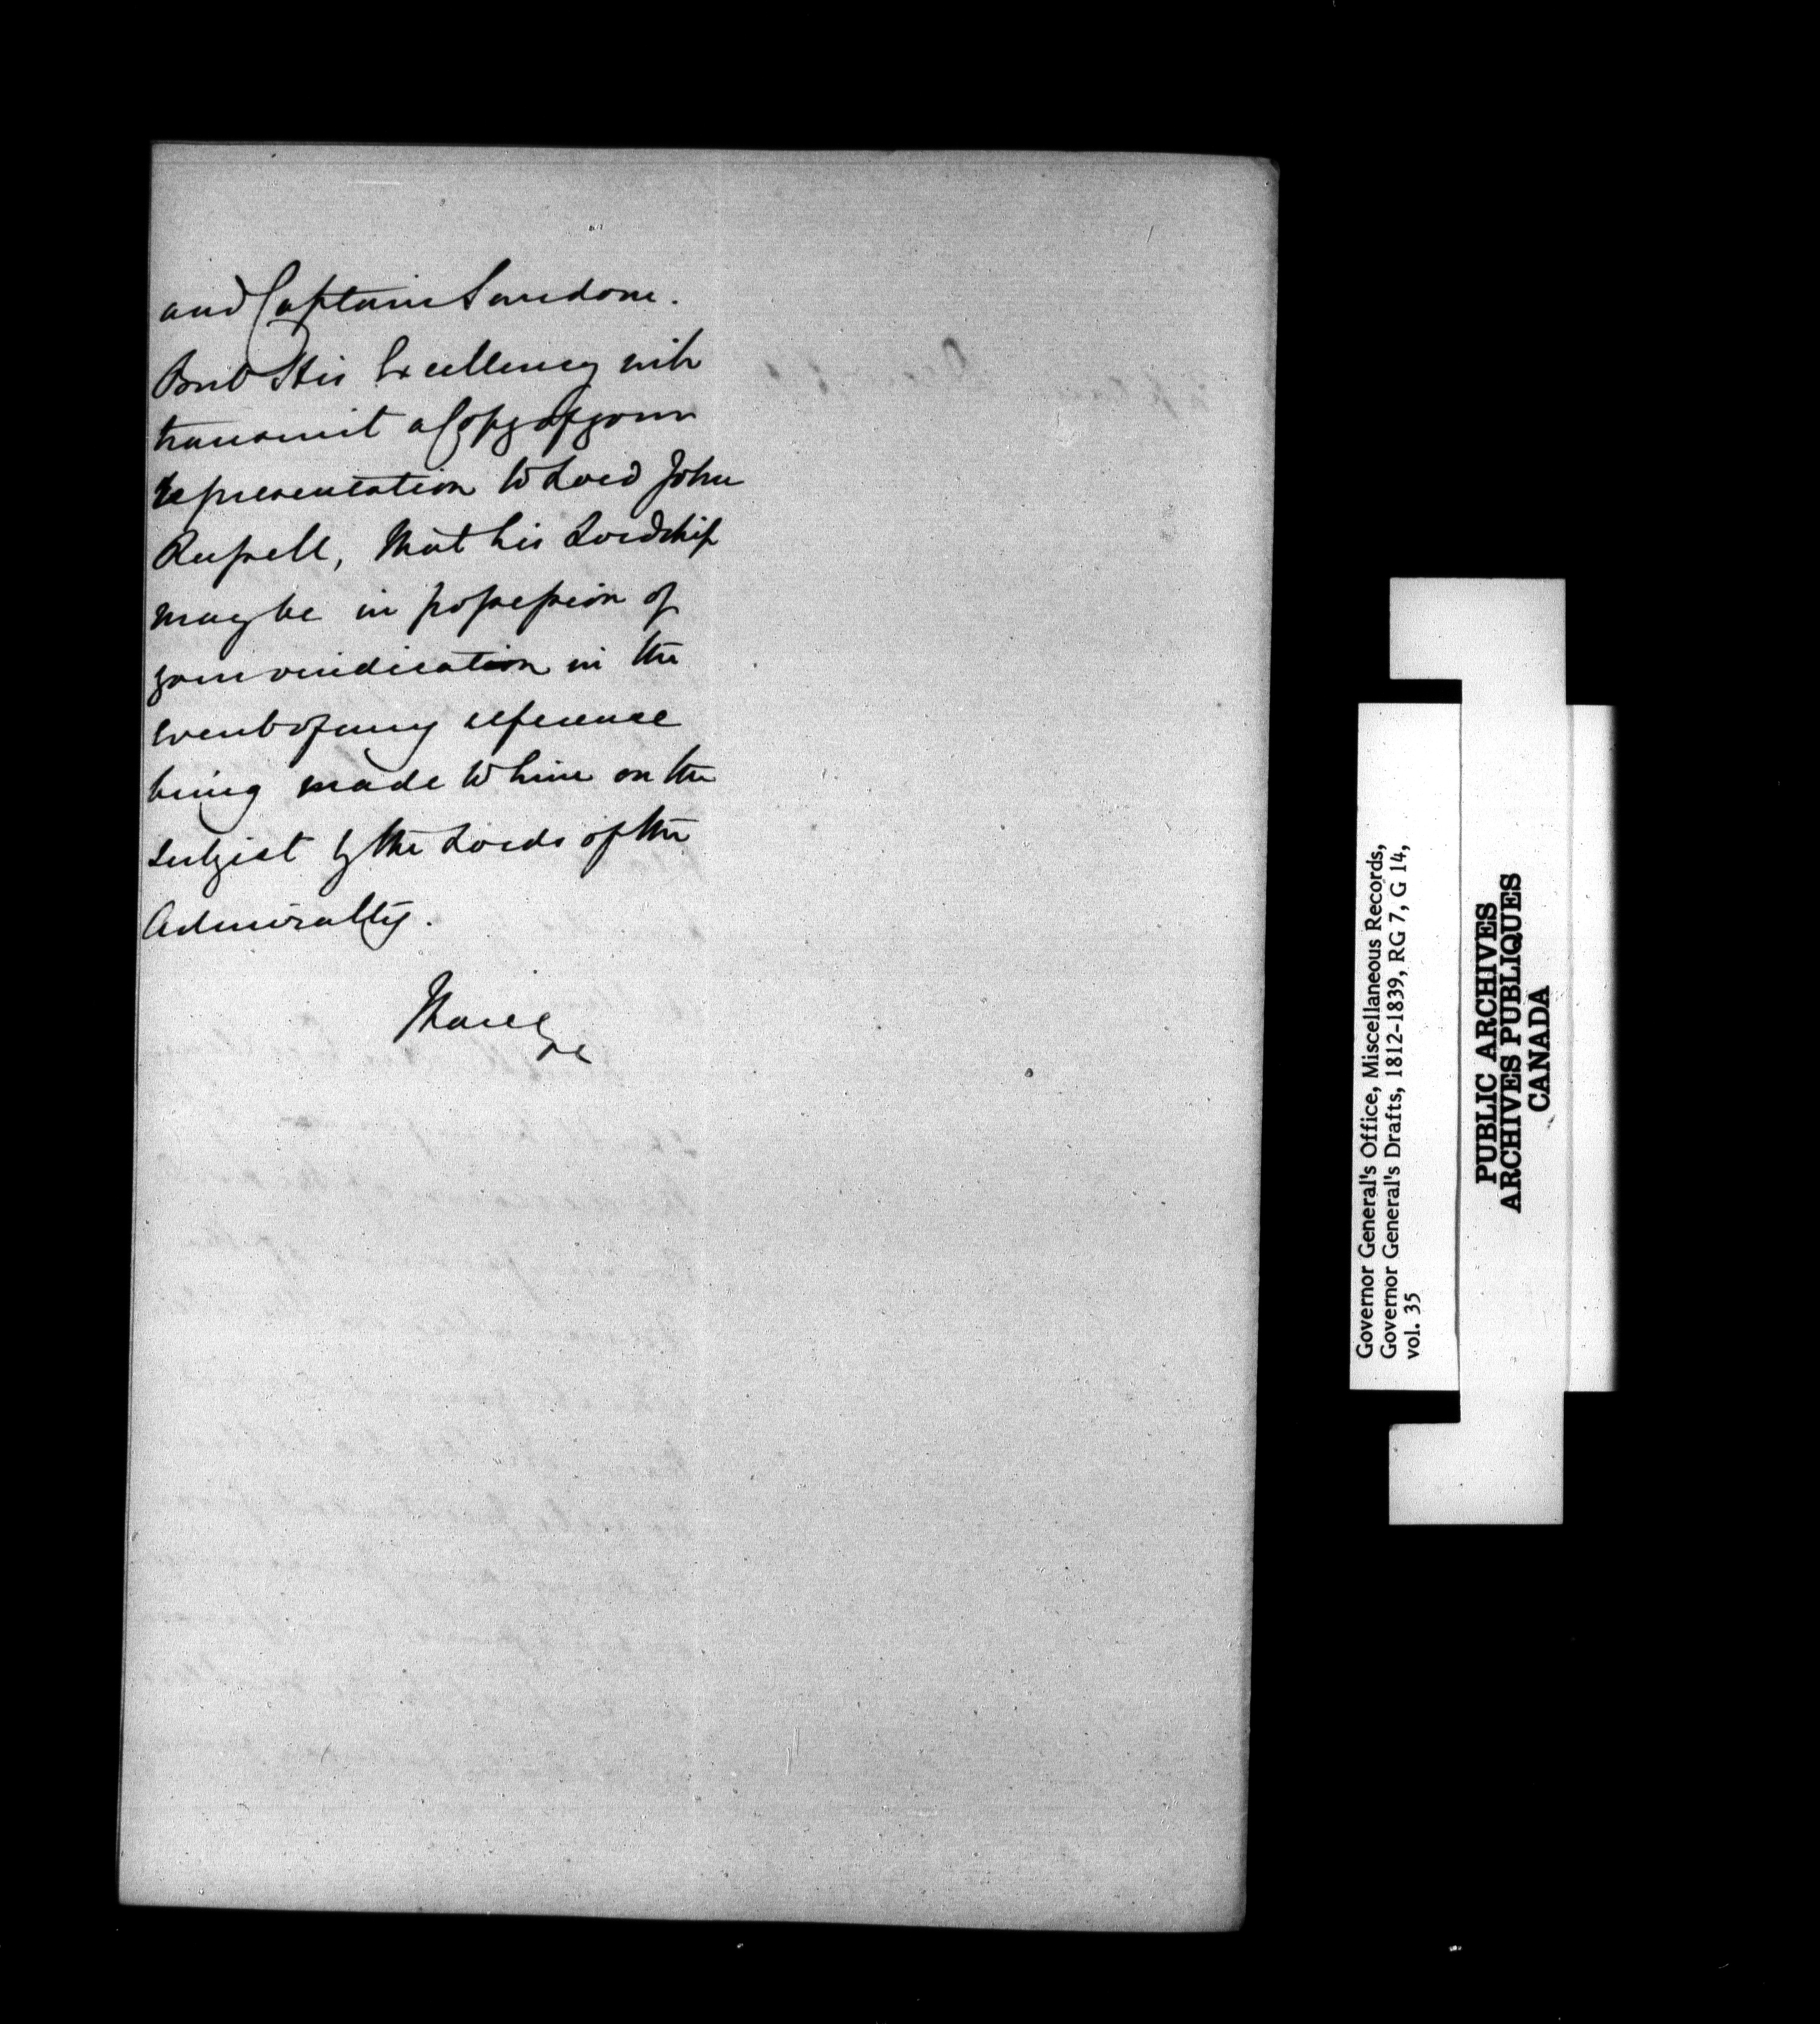 and Captain Sandom.
But His Excellency will
transmit a Copy of your
representation to Lord John
Russell, that his Lordship
may be in possession of
your vindication in the
event of any reference
being made to him on the
subject by the Lords of the
Admiralty.
I have &c
Governor General's Office, Miscellaneous Records,
Governor General's Drafts, 1812-1839, RG 7, G 14,
vol. 35
PUBLIC ARCHIVES
ARCHIVES PUBLIQUES
CANADA